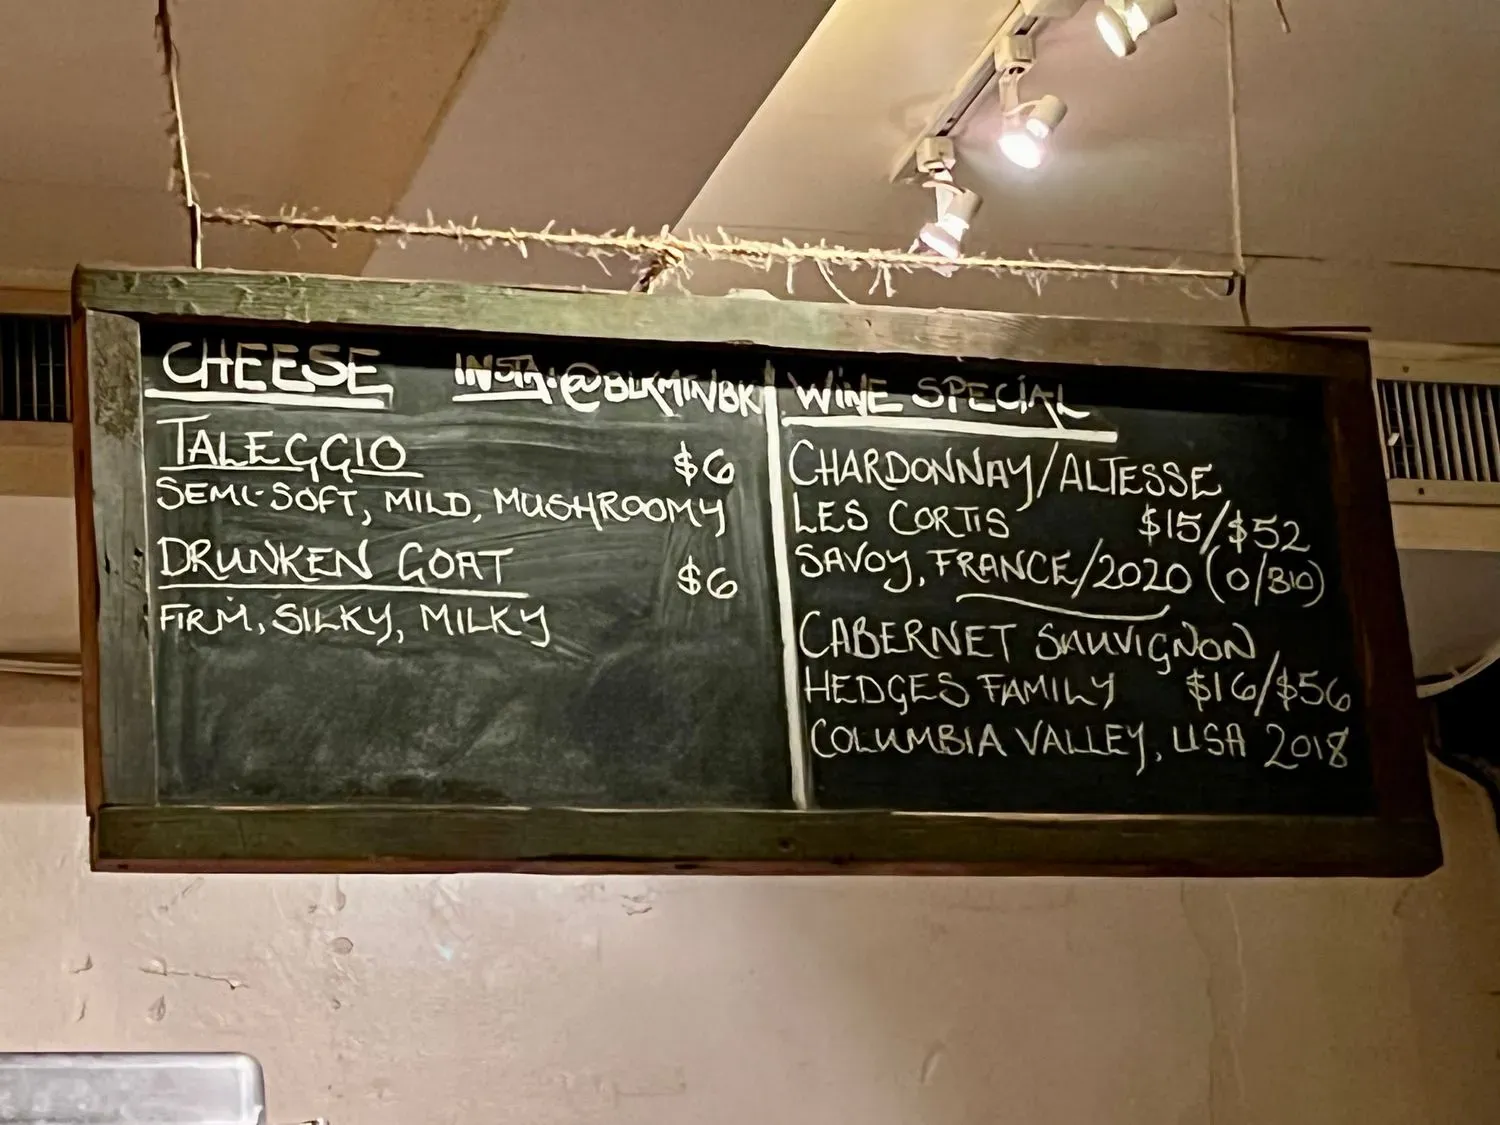 CHEESE
INSTA:@BLKMTNBK
TALEGGIO $6
SEMI-SOFT, MILD, MUSHROOMY
DRUNKEN GOAT $6
FIRM, SILKY, MILKY
WINE SPECIAL
CHARDONNAY/ALTESSE
LES CORTIS $15/$52
SAVOY, FRANCE/2020 (O/BIO)
CABERNET SAUVIGNON
HEDGES FAMILY $16/$56
COLUMBIA VALLEY, USA 2018